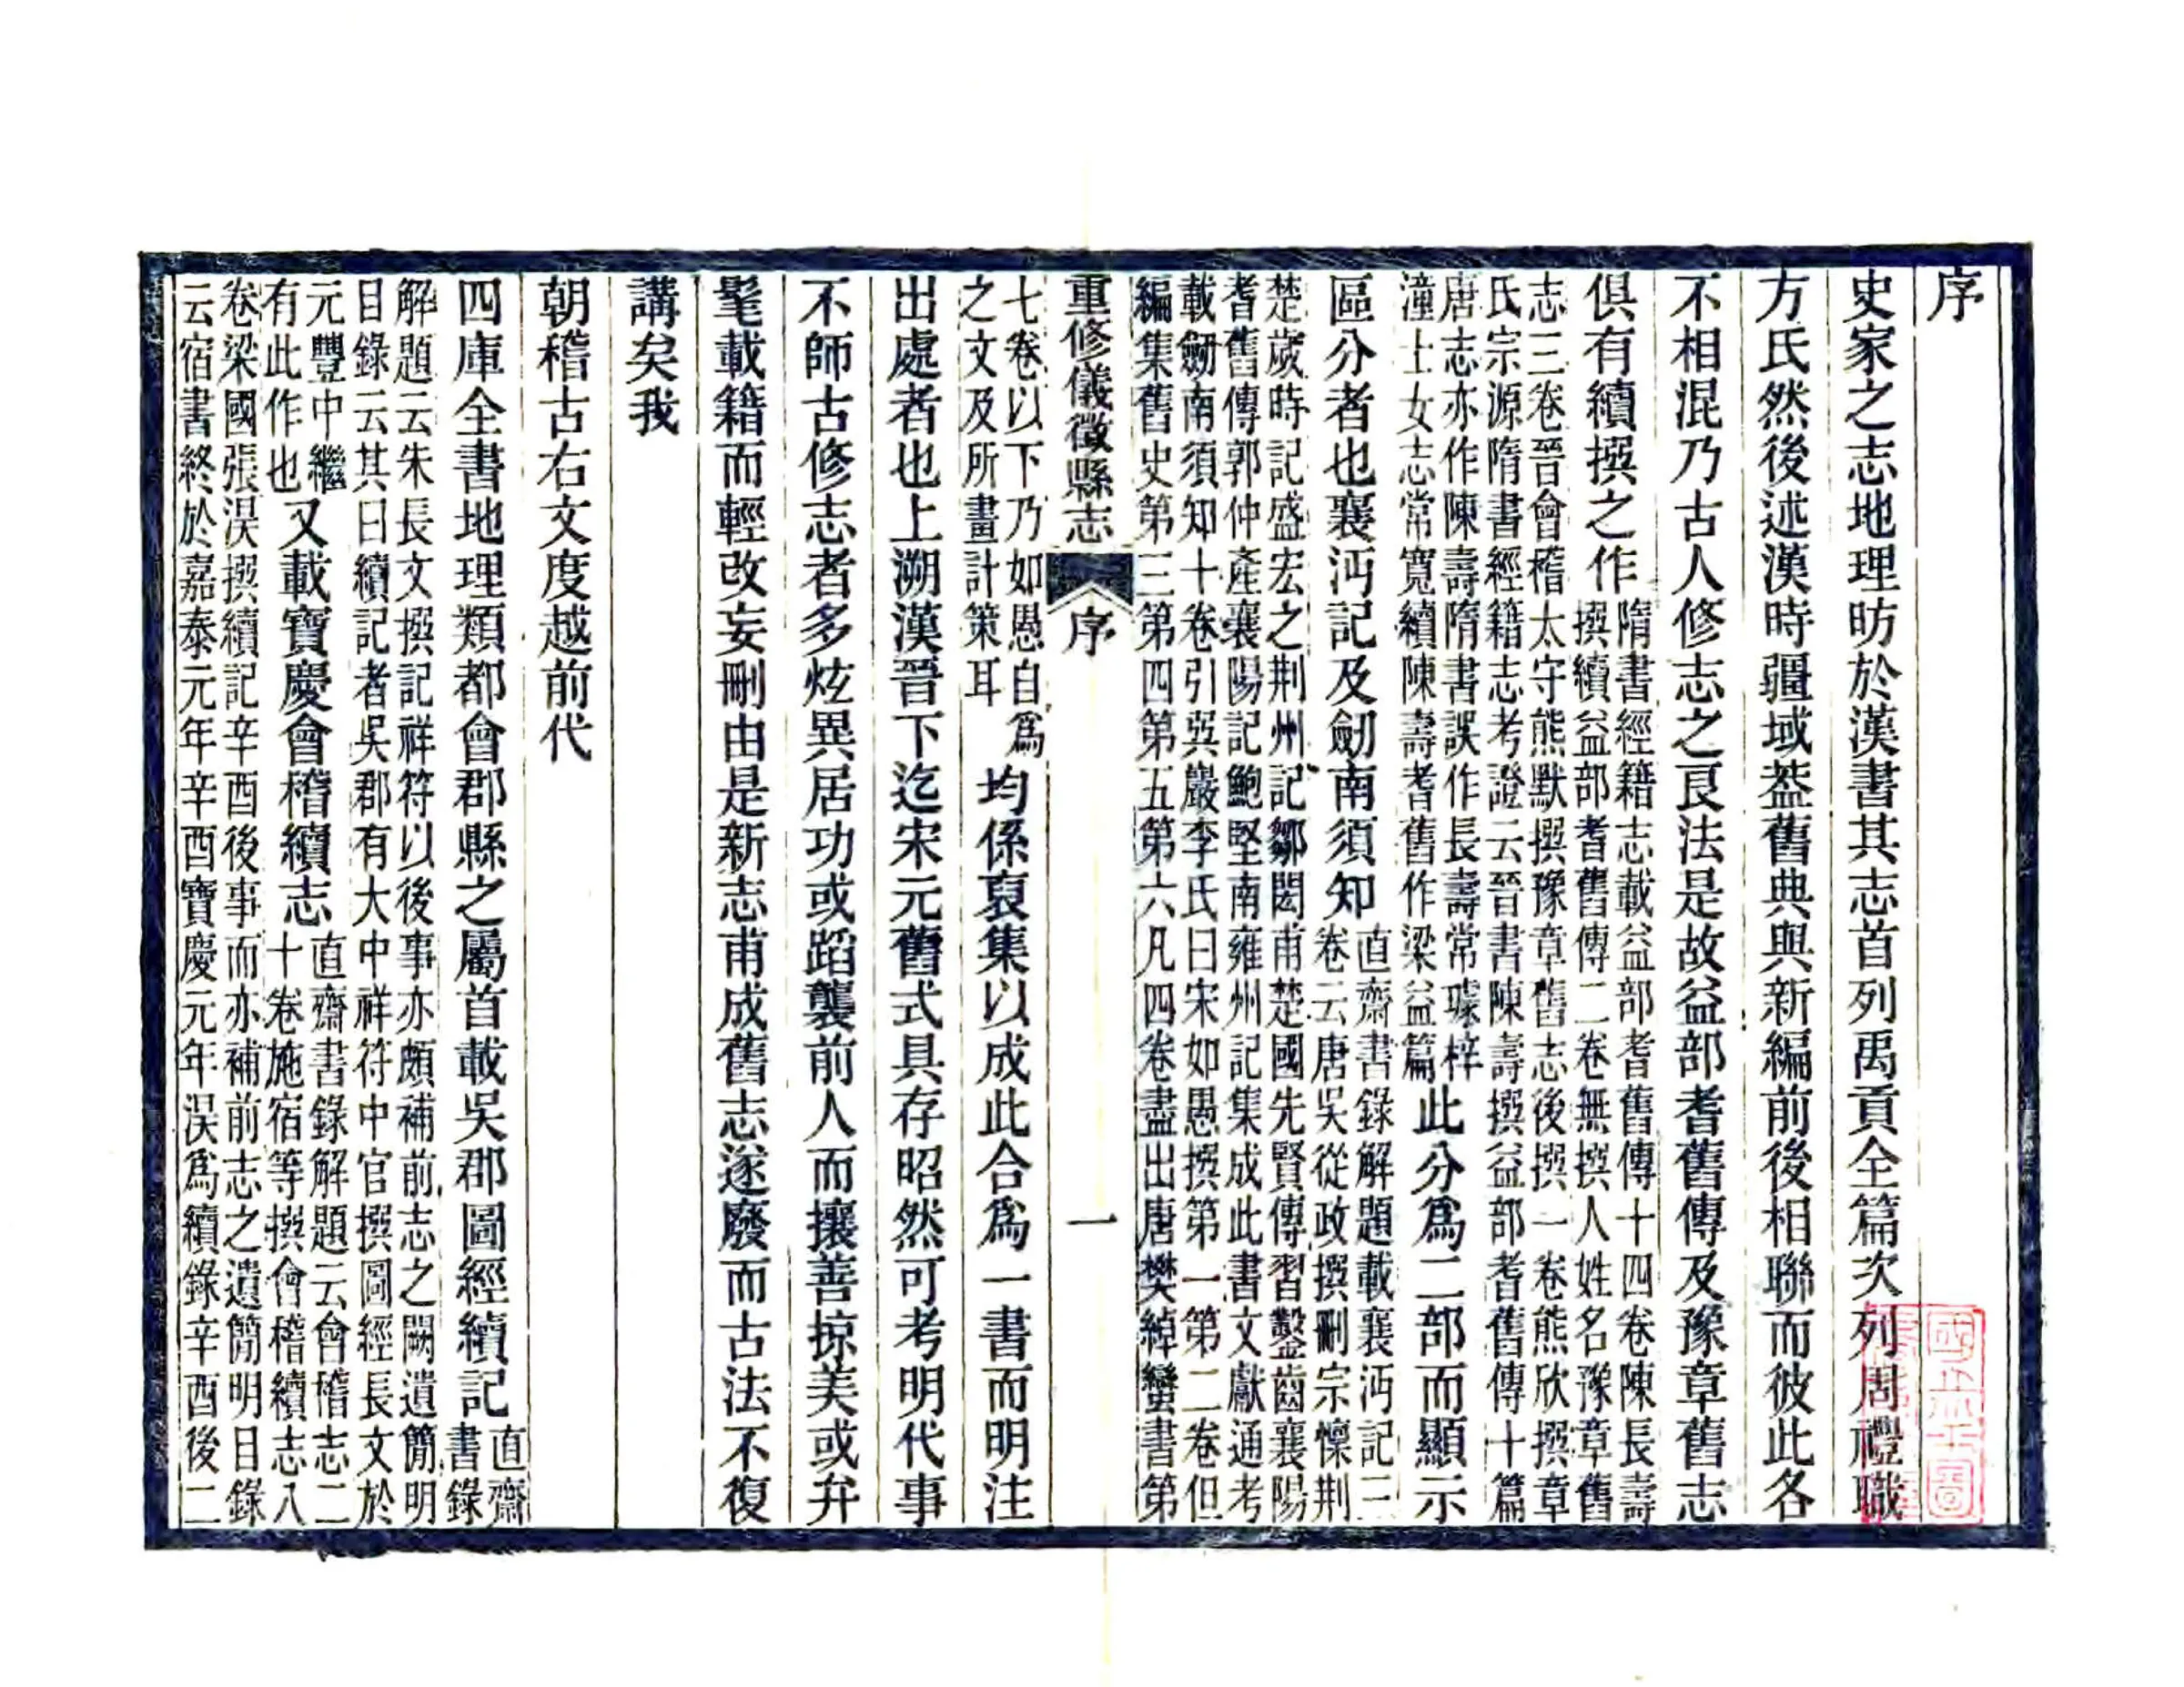 序
史家之志地理昉於漢書其志首列禹貢全篇次列周禮職
方氏然後述漢時疆域葢舊典與新編前後相聯而彼此各
不相混乃古人修志之良法是故益部耆舊傳及豫章舊志
俱有續撰之作
隋書經籍志載益部耆舊傳十四卷陳長壽
撰續益部耆舊傳二卷無撰人姓名豫章舊
志三卷晉會稽太守熊默撰豫章舊志後撰一卷熊欣撰章
氏宗源隋書經籍志考證云晉書陳壽撰益部耆舊傳十篇
唐志亦作陳壽隋書誤作長壽常璩梓
潼士女志常寬續陳壽耆舊作梁益篇
此分爲二部而顯示
區分者也襄沔記及劒南須知
直齋書錄解題載襄沔記三
卷云唐吳從政撰刪宗懍荆
楚歲時記盛宏之荆州記鄒閎甫楚國先賢傳習鑿齒襄陽
耆舊傳郭仲產襄陽記鮑堅南雍州記集成此書文獻通考
載劒南須知十卷引巽巖李氏曰宋如愚撰第一第二卷但
編集舊史第三第四第五第六凡四卷盡出唐樊綽蠻書第
重修儀徵縣志
序
一
七卷以下乃如愚自爲
之文及所畫計策耳
均係裒集以成此合爲一書而明注
出處者也上溯漢晉下迄宋元舊式具存昭然可考明代事
不師古修志者多炫異居功或蹈襲前人而攘善掠美或弁
髦載籍而輕改妄刪由是新志甫成舊志遂廢而古法不復
講矣我
朝稽古右文度越前代
四庫全書地理類都會郡縣之屬首載吳郡圖經續記
直齋
書錄
解題云朱長文撰記祥符以後事亦頗補前志之闕遺簡明
目錄云其曰續記者吳郡有大中祥符中官撰圖經長文於
元豐中繼
有此作也
又載寶慶會稽續志
直齋書錄解題云會稽志二
十卷施宿等撰會稽續志八
卷梁國張淏撰續記辛酉後事而亦補前志之遺簡明目錄
云宿書終於嘉泰元年辛酉寶慶元年淏爲續錄辛酉後二